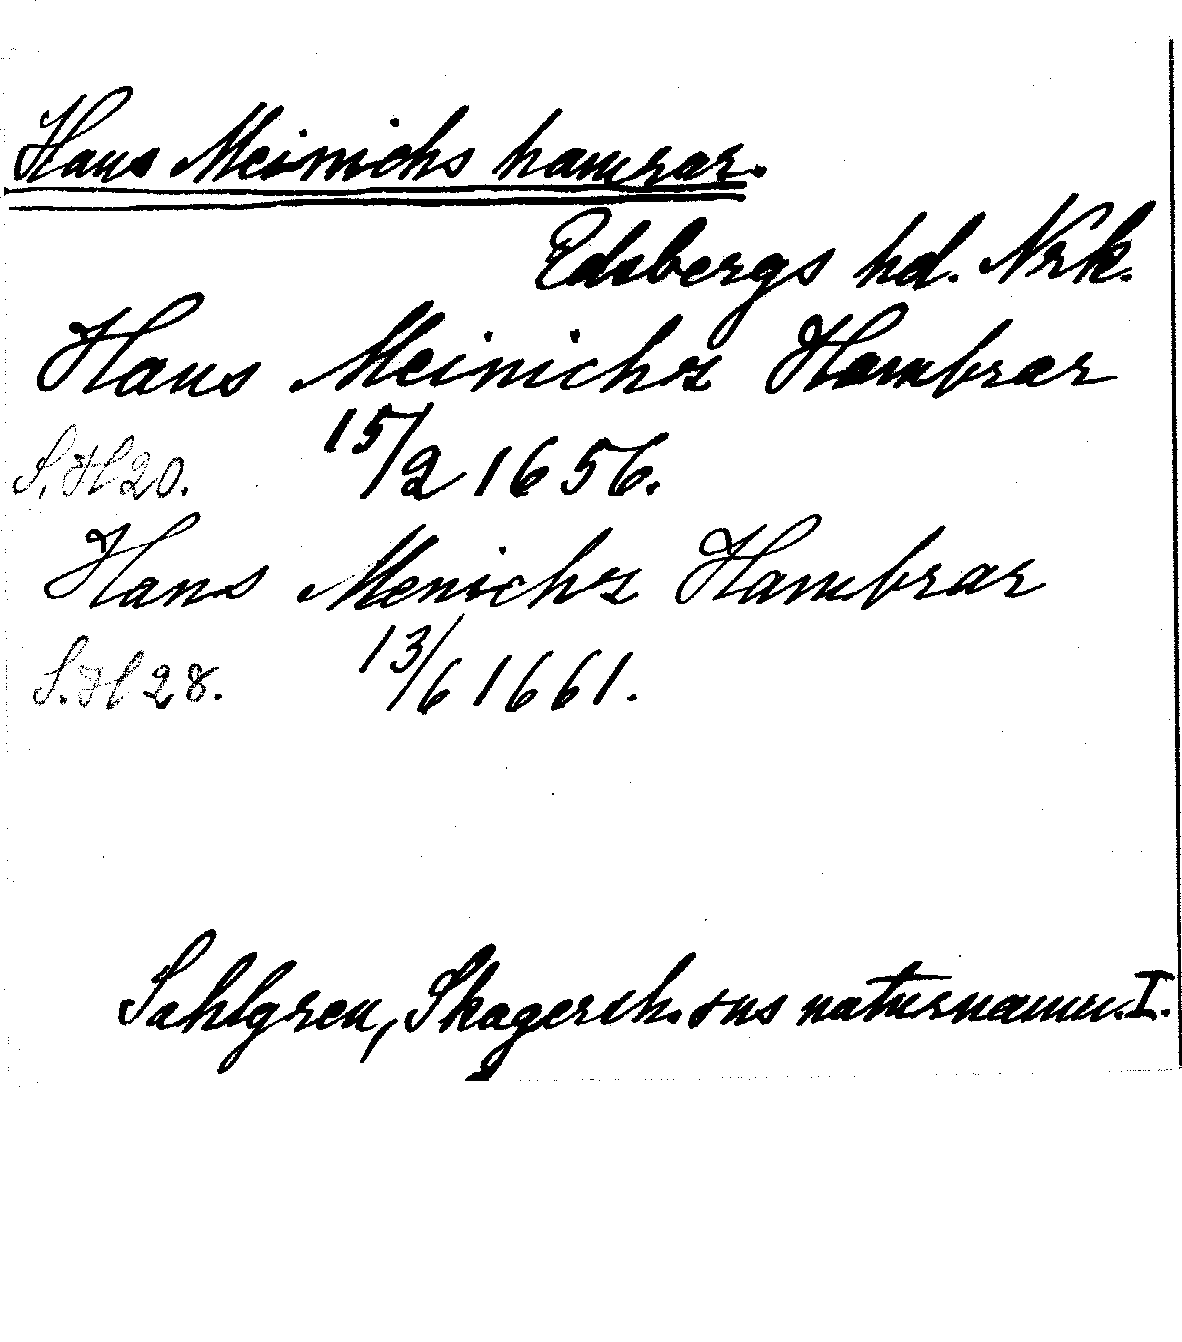 Hans Meinichs hamrar.
Edsbergs hd. Nrk.
Hans Meinichz Hambrar
S. H 20. 15/2 1656.
Hans Menichz Hambrar
S. H 28. 13/6 1661.
Sahlgren, Skagersh. sns naturnamn. I.